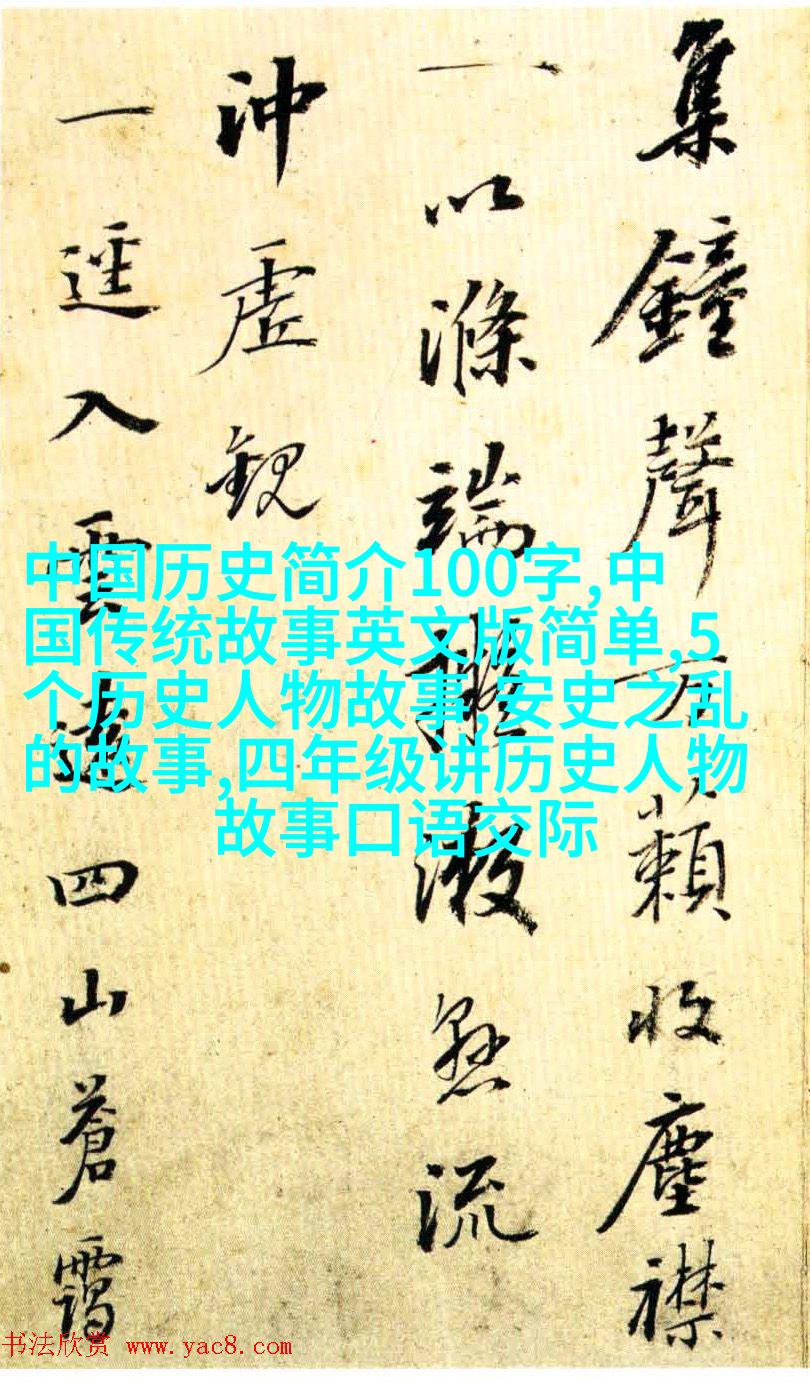 集鐘聲万籟收塵襟
一以滌端漱急流
沖虛觀
一逕入雲四山蒼靄
中国历史简介100字,中
国传统故事英文版简单,5
个历史人物故事,安史之乱
的故事,四年级讲历史人物
故事口语交际
书法欣赏 www.yac8.com